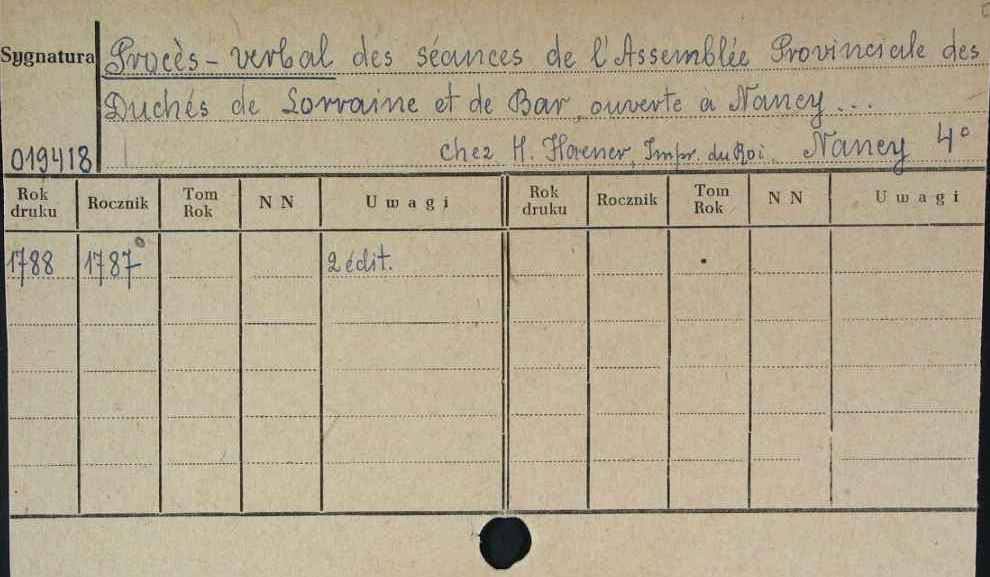 Sygnatura Procès-verbal des séances de l'Assemblée Provinciale des
Duchés de Lorraine et de Bar, ouverte à Nancy...
019418 chez H. Haener, Impr. du Roi. Nancy 4°
Rok druku Rocznik Tom Rok NN Uwagi Rok druku Rocznik Tom Rok NN Uwagi
1788 1787 2 édit.